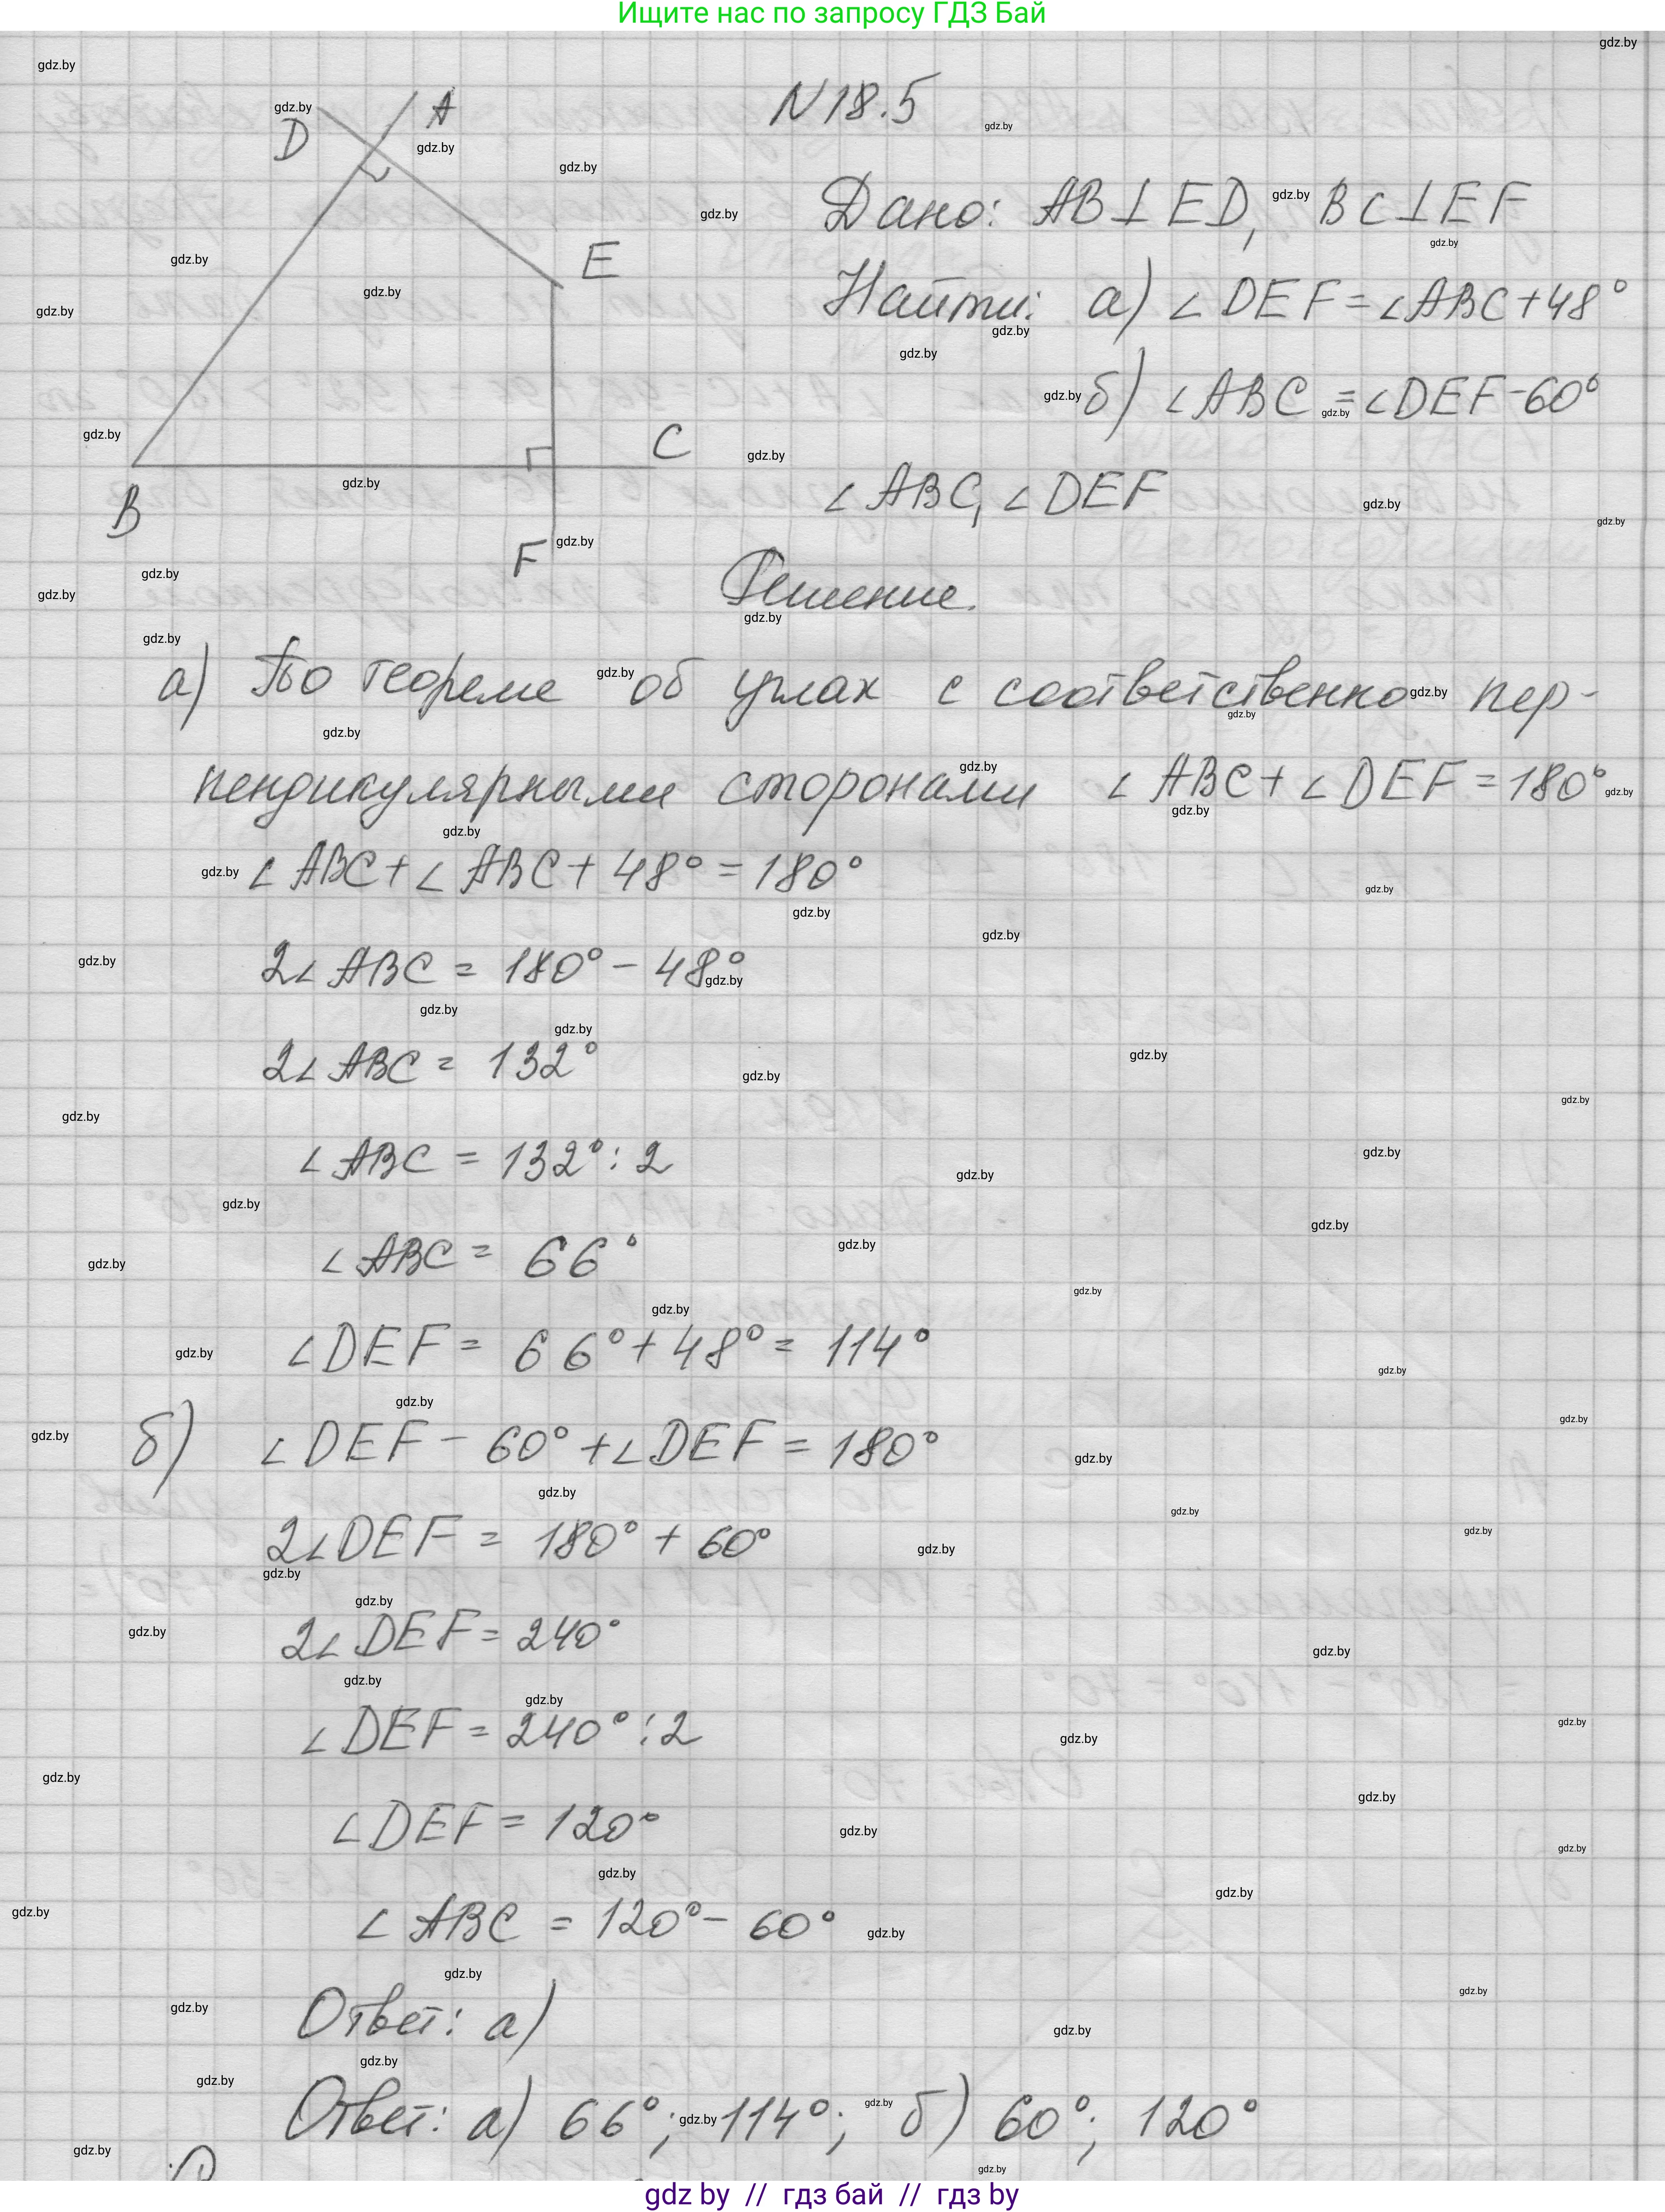 Ищите нас по запросу ГДЗ Бай
N18.5
D
A
E
B
C
F
Дано: AB⊥ED, BC⊥EF
Найти: а) ∠DEF=∠ABC+48°
б) ∠ABC=∠DEF-60°
∠ABC, ∠DEF
Решение.
а) По теореме об углах с соответственно пер-
пендикулярными сторонами ∠ABC+∠DEF=180°
∠ABC+∠ABC+48°=180°
2∠ABC=180°-48°
2∠ABC=132°
∠ABC=132°:2
∠ABC=66°
∠DEF=66°+48°=114°
б) ∠DEF-60°+∠DEF=180°
2∠DEF=180°+60°
2∠DEF=240°
∠DEF=240°:2
∠DEF=120°
∠ABC=120°-60°
Ответ: а)
Ответ: а) 66°; 114°; б) 60°; 120°
gdz by // гдз бай // гдз by